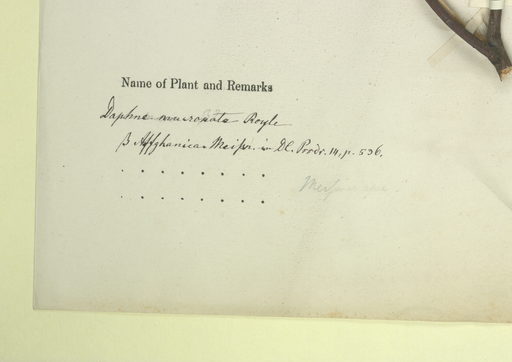 Name of Plant and Remarks
Daphne mucronata Royle
β Affghanica Meisn. in DC. Prodr. 14, p. 536.